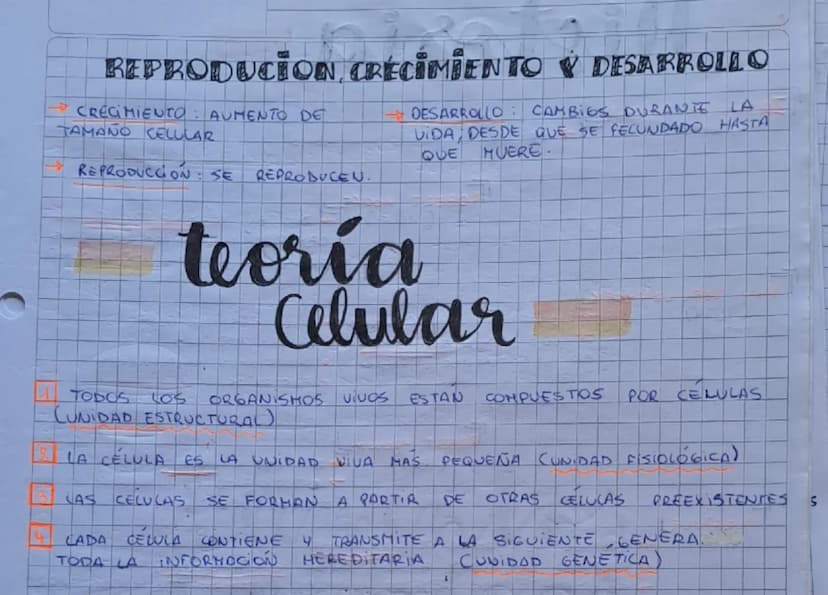 REPRODUCION, CRECIMIENTO Y DESARROLLO
→ CRECIMIENTO: AUMENTO DE
TAMAÑO CELULAR
→ REPRODUCCIÓN: SE REPRODUCEN.
→ DESARROLLO: CAMBIOS DURANTE LA
VIDA, DESDE QUE SE FECUNDADO HASTA
QUE MUERE.
teoría
Celular
1 TODOS LOS ORGANISMOS VIVOS ESTÁN COMPUESTOS POR CÉLULAS
(UNIDAD ESTRUCTURAL)
2 LA CÉLULA ES LA UNIDAD VIVA MÁS PEQUEÑA (UNIDAD FISIOLÓGICA)
3 LAS CÉLULAS SE FORMAN A PARTIR DE OTRAS CÉLULAS PREEXISTENTES
4 CADA CÉLULA CONTIENE Y TRANSMITE A LA SIGUIENTE GENERA
TODA LA INFORMACIÓN HEREDITARIA (UNIDAD GENÉTICA)